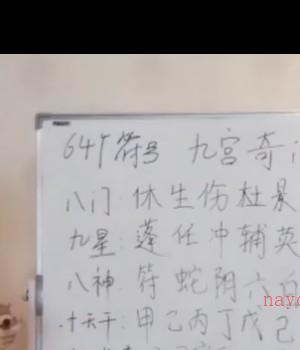 64个符号 九宫奇
八门:休生伤杜景
九星:蓬任冲辅英
八神:符蛇阴六白
十天干:甲己丙丁戊己